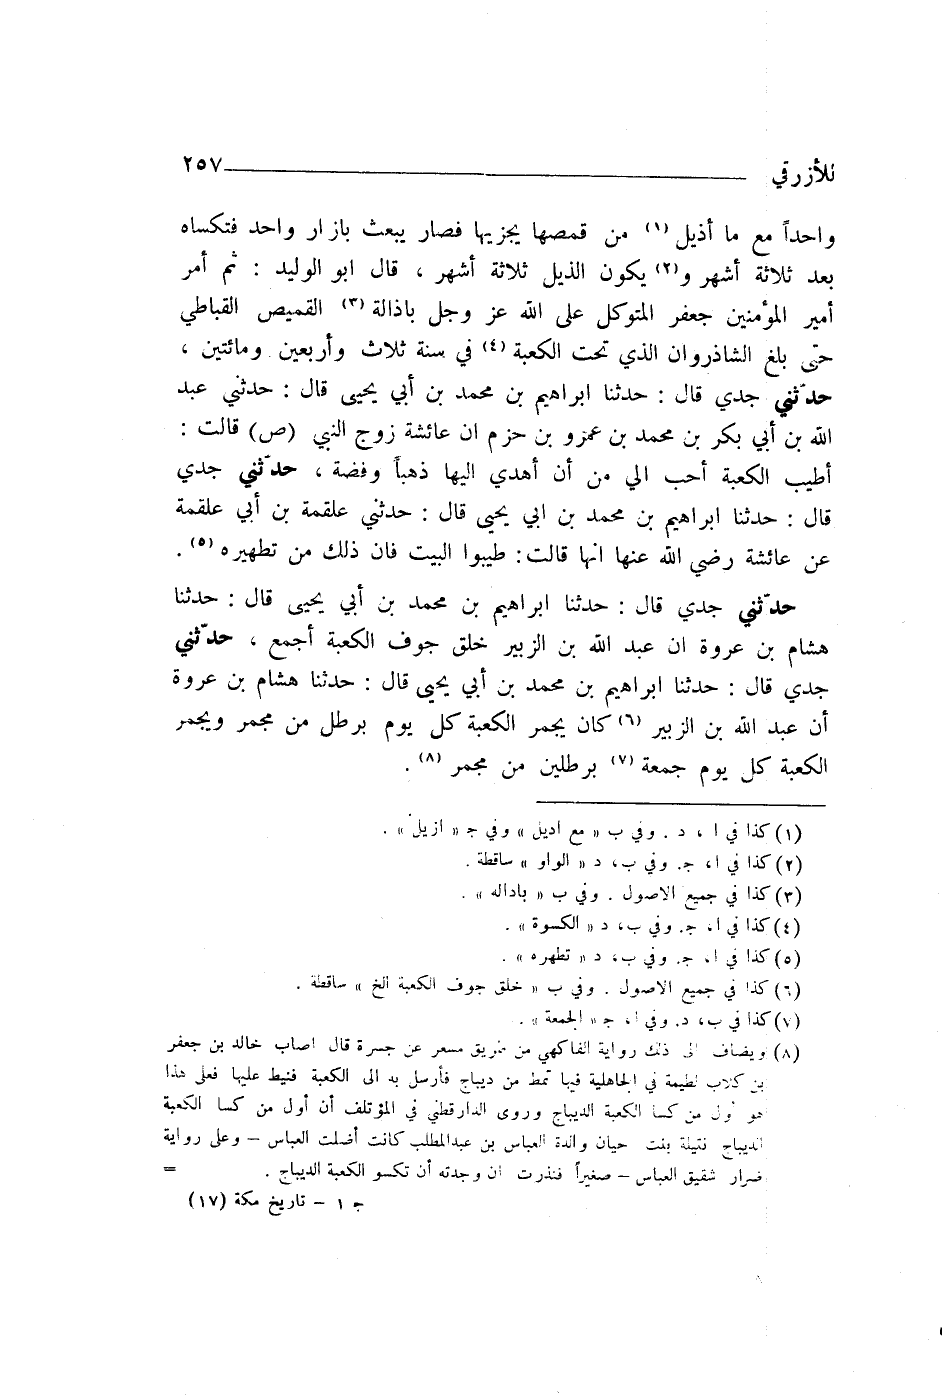 للأزرقي ٢٥٧
واحداً مع ما أذيل (١) من قمصها يجزيها فصار يبعث بازار واحد فتكساه
بعد ثلاثة أشهر و(٢) يكون الذيل ثلاثة أشهر ، قال ابو الوليد : ثم أمر
أمير المؤمنين جعفر المتوكل على الله عز وجل باذالة (٣) القميص القباطي
حتى بلغ الشاذروان الذي تحت الكعبة (٤) في سنة ثلاث وأربعين ومائتين ،
حدّثني جدي قال : حدثنا ابراهيم بن محمد بن أبي يحيى قال : حدثني عبد
الله بن أبي بكر بن محمد بن عمرو بن حزم ان عائشة زوج النبي (ص) قالت :
أطيب الكعبة أحب الي من أن أهدي اليها ذهباً وفضة ، حدّثني جدي
قال : حدثنا ابراهيم بن محمد بن ابي يحيى قال : حدثني علقمة بن أبي علقمة
عن عائشة رضي الله عنها انها قالت : طيبوا البيت فان ذلك من تطهيره (٥) .
حدّثني جدي قال : حدثنا ابراهيم بن محمد بن أبي يحيى قال : حدثنا
هشام بن عروة ان عبد الله بن الزبير خلق جوف الكعبة أجمع ، حدّثني
جدي قال : حدثنا ابراهيم بن محمد بن أبي يحيى قال : حدثنا هشام بن عروة
أن عبد الله بن الزبير (٦) كان يجمر الكعبة كل يوم برطل من مجمر ويجمر
الكعبة كل يوم جمعة (٧) برطلين من مجمر (٨) .
(١) كذا في ا ، د . وفي ب « مع اديل » وفي جـ « ازيل » .
(٢) كذا في ا، جـ. وفي ب، د « الواو » ساقطة .
(٣) كذا في جميع الاصول . وفي ب « باداله » .
(٤) كذا في ا، جـ. وفي ب، د « الكسوة » .
(٥) كذا في ا، جـ. وفي ب، د « تطهره » .
(٦) كذا في جميع الاصول . وفي ب « خلق جوف الكعبة الخ » ساقطة .
(٧) كذا في ب، د. وفي ا، جـ « الجمعة » .
(٨) ويضاف الى ذلك رواية الفاكهي من طريق مسعر عن جسرة قال اصاب خالد بن جعفر
بن كلاب لطيمة في الجاهلية فيها نمط من ديباج فأرسل به الى الكعبة فنيط عليها فعلى هذا
هو أول من كسا الكعبة الديباج وروى الدارقطني في المؤتلف أن أول من كسا الكعبة
الديباج نتيلة بنت حيان والدة العباس بن عبدالمطلب كانت أضلت العباس – وعلى رواية
ضرار شقيق العباس – صغيراً فنذرت ان وجدته أن تكسو الكعبة الديباج . =
جـ ١ – تاريخ مكة (١٧)